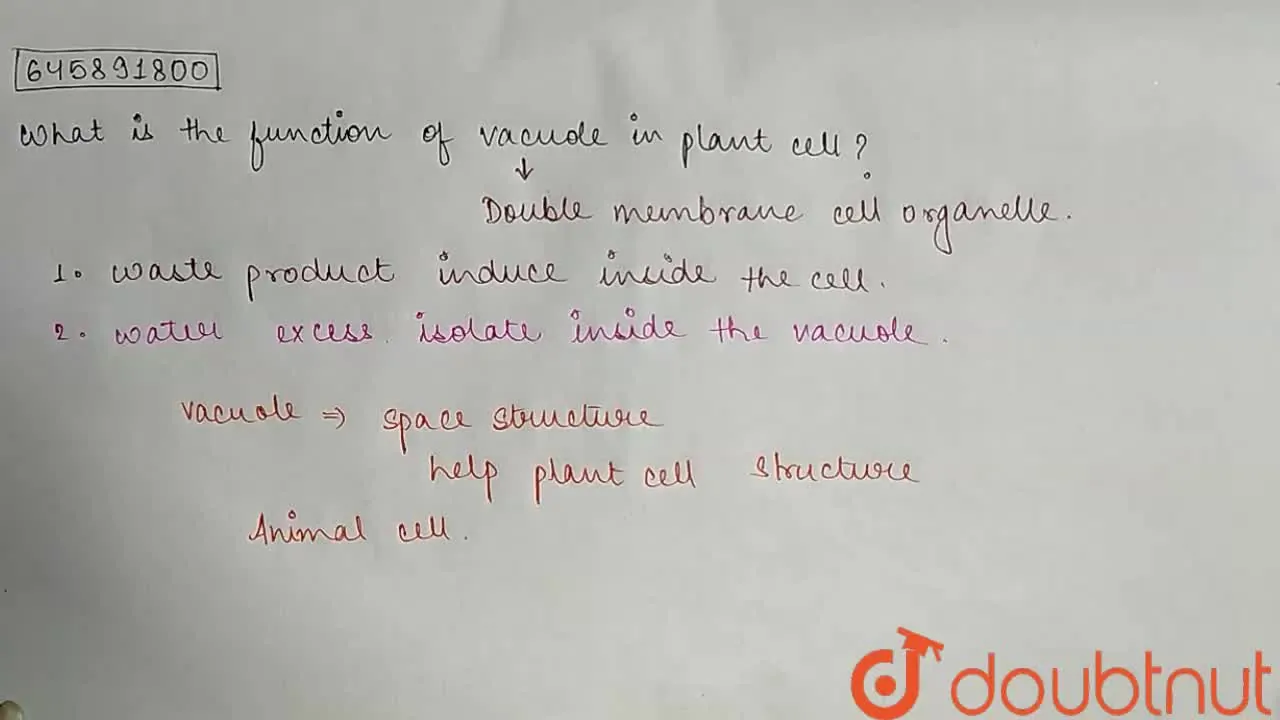 645891800
What is the function of vacuole in plant cell?
↓
Double membrane cell organelle.
1. waste product induce inside the cell.
2. water excess isolate inside the vacuole.
vacuole ⇒ space structure
help plant cell structure
Animal cell.
doubtnut